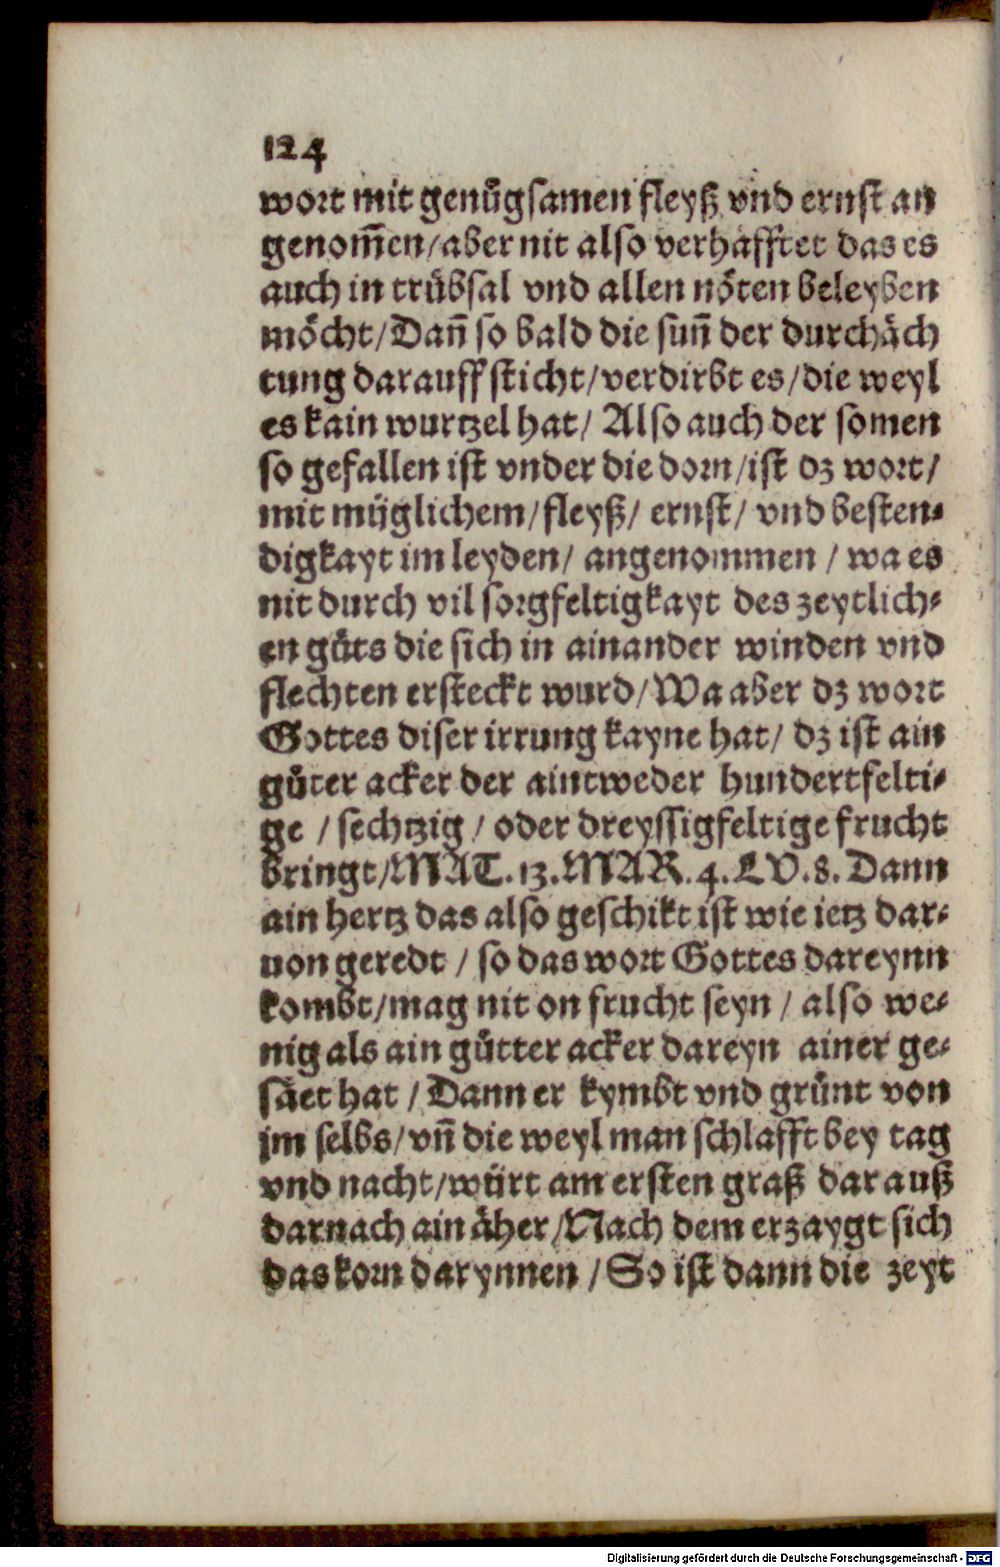 124
wort mit genůgsamen fleyß vnd ernst an
genom̅en/aber nit also verhafftet das es
auch in trübsal vnd allen nöten beleyben
möcht/Dan̅ so bald die sun̅ der durchäch
tung darauff sticht/verdirbt es/die weyl
es kain wurtzel hat/ Also auch der somen
so gefallen ist vnder die dorn/ist dz wort/
mit müglichem/fleyß/ ernst/ vnd besten⸗
digkayt im leyden/ angenommen / wa es
nit durch vil sorgfeltigkayt des zeytlich⸗
en gůts die sich in ainander winden vnd
flechten ersteckt wurd/Wa aber dz wort
Gottes diser irrung kayne hat/ dz ist ain
gůter acker der aintweder hundertfelti⸗
ge / sechtzig / oder dreyssigfeltige frucht
bringt/MAT.13.MAR.4.LV.8.Dann
ain hertz das also geschikt ist wie ietz dar⸗
uon geredt / so das wort Gottes dareynn
kombt/mag nit on frucht seyn / also we⸗
nig als ain gůtter acker dareyn ainer ge⸗
säet hat / Dann er kymbt vnd grünt von
jm selbs/vn̅ die weyl man schlafft bey tag
vnd nacht/würt am ersten graß dar auß
darnach ain äher/Nach dem erzaygt sich
das korn darynnen / So ist dann die zeyt
Digitalisierung gefördert durch die Deutsche Forschungsgemeinschaft - DFG